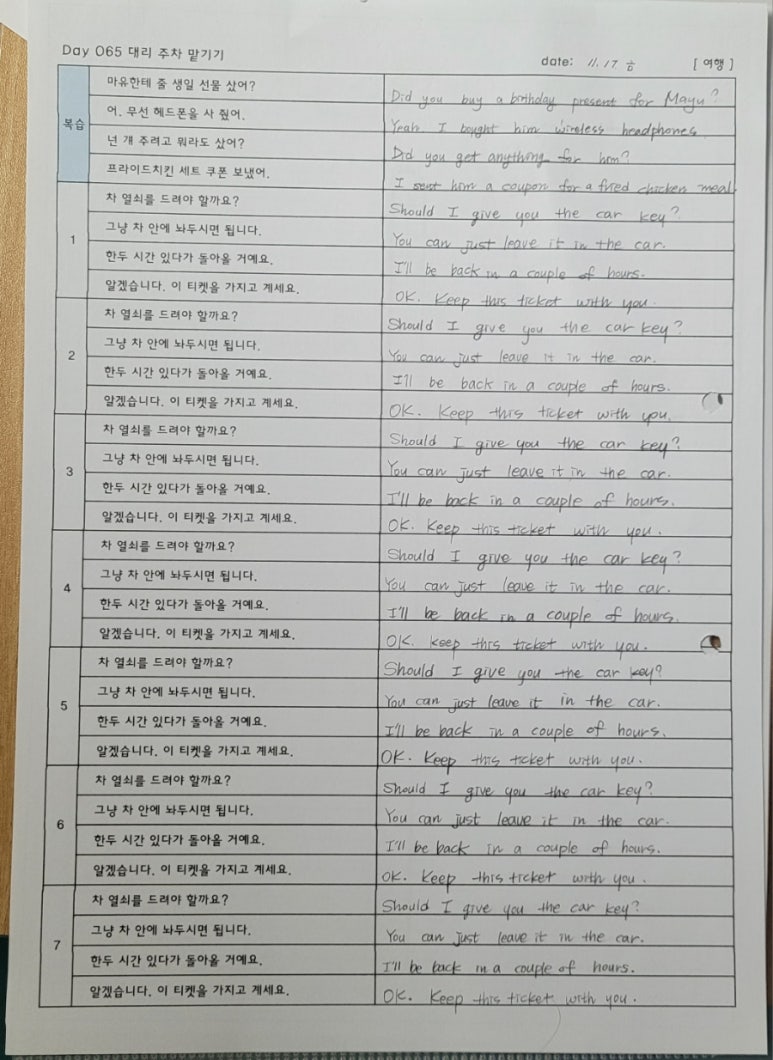 Day 065 대리 주차 맡기기 date: 11. 17 흙 [ 여행 ]
복습
마유한테 줄 생일 선물 샀어? Did you buy a birthday present for Mayu?
어. 무선 헤드폰을 사 줬어. Yeah I bought him wireless headphones.
넌 걔 주려고 뭐라도 샀어? Did you get anything for him?
프라이드치킨 세트 쿠폰 보냈어. I sent him a coupon for a fried chicken meal
1
차 열쇠를 드려야 할까요? Should I give you the car key?
그냥 차 안에 놔두시면 됩니다. You can just leave it in the car.
한두 시간 있다가 돌아올 거예요. I'll be back in a couple of hours.
알겠습니다. 이 티켓을 가지고 계세요. OK. Keep this ticket with you.
2
차 열쇠를 드려야 할까요? Should I give you the car key?
그냥 차 안에 놔두시면 됩니다. You can just leave it in the car.
한두 시간 있다가 돌아올 거예요. I'll be back in a couple of hours.
알겠습니다. 이 티켓을 가지고 계세요. OK. Keep this ticket with you.
3
차 열쇠를 드려야 할까요? Should I give you the car key?
그냥 차 안에 놔두시면 됩니다. You can just leave it in the car.
한두 시간 있다가 돌아올 거예요. I'll be back in a couple of hours.
알겠습니다. 이 티켓을 가지고 계세요. OK. Keep this ticket with you.
4
차 열쇠를 드려야 할까요? Should I give you the car key?
그냥 차 안에 놔두시면 됩니다. You can just leave it in the car.
한두 시간 있다가 돌아올 거예요. I'll be back in a couple of hours.
알겠습니다. 이 티켓을 가지고 계세요. OK. keep this ticket with you.
5
차 열쇠를 드려야 할까요? Should I give you the car key?
그냥 차 안에 놔두시면 됩니다. You can just leave it in the car.
한두 시간 있다가 돌아올 거예요. I'll be back in a couple of hours.
알겠습니다. 이 티켓을 가지고 계세요. OK. Keep this ticket with you.
6
차 열쇠를 드려야 할까요? Should I give you the car key?
그냥 차 안에 놔두시면 됩니다. You can just leave it in the car.
한두 시간 있다가 돌아올 거예요. I'll be back in a couple of hours.
알겠습니다. 이 티켓을 가지고 계세요. OK. Keep this ticket with you.
7
차 열쇠를 드려야 할까요? Should I give you the car key?
그냥 차 안에 놔두시면 됩니다. You can just leave it in the car.
한두 시간 있다가 돌아올 거예요. I'll be back in a couple of hours.
알겠습니다. 이 티켓을 가지고 계세요. OK. Keep this ticket with you.